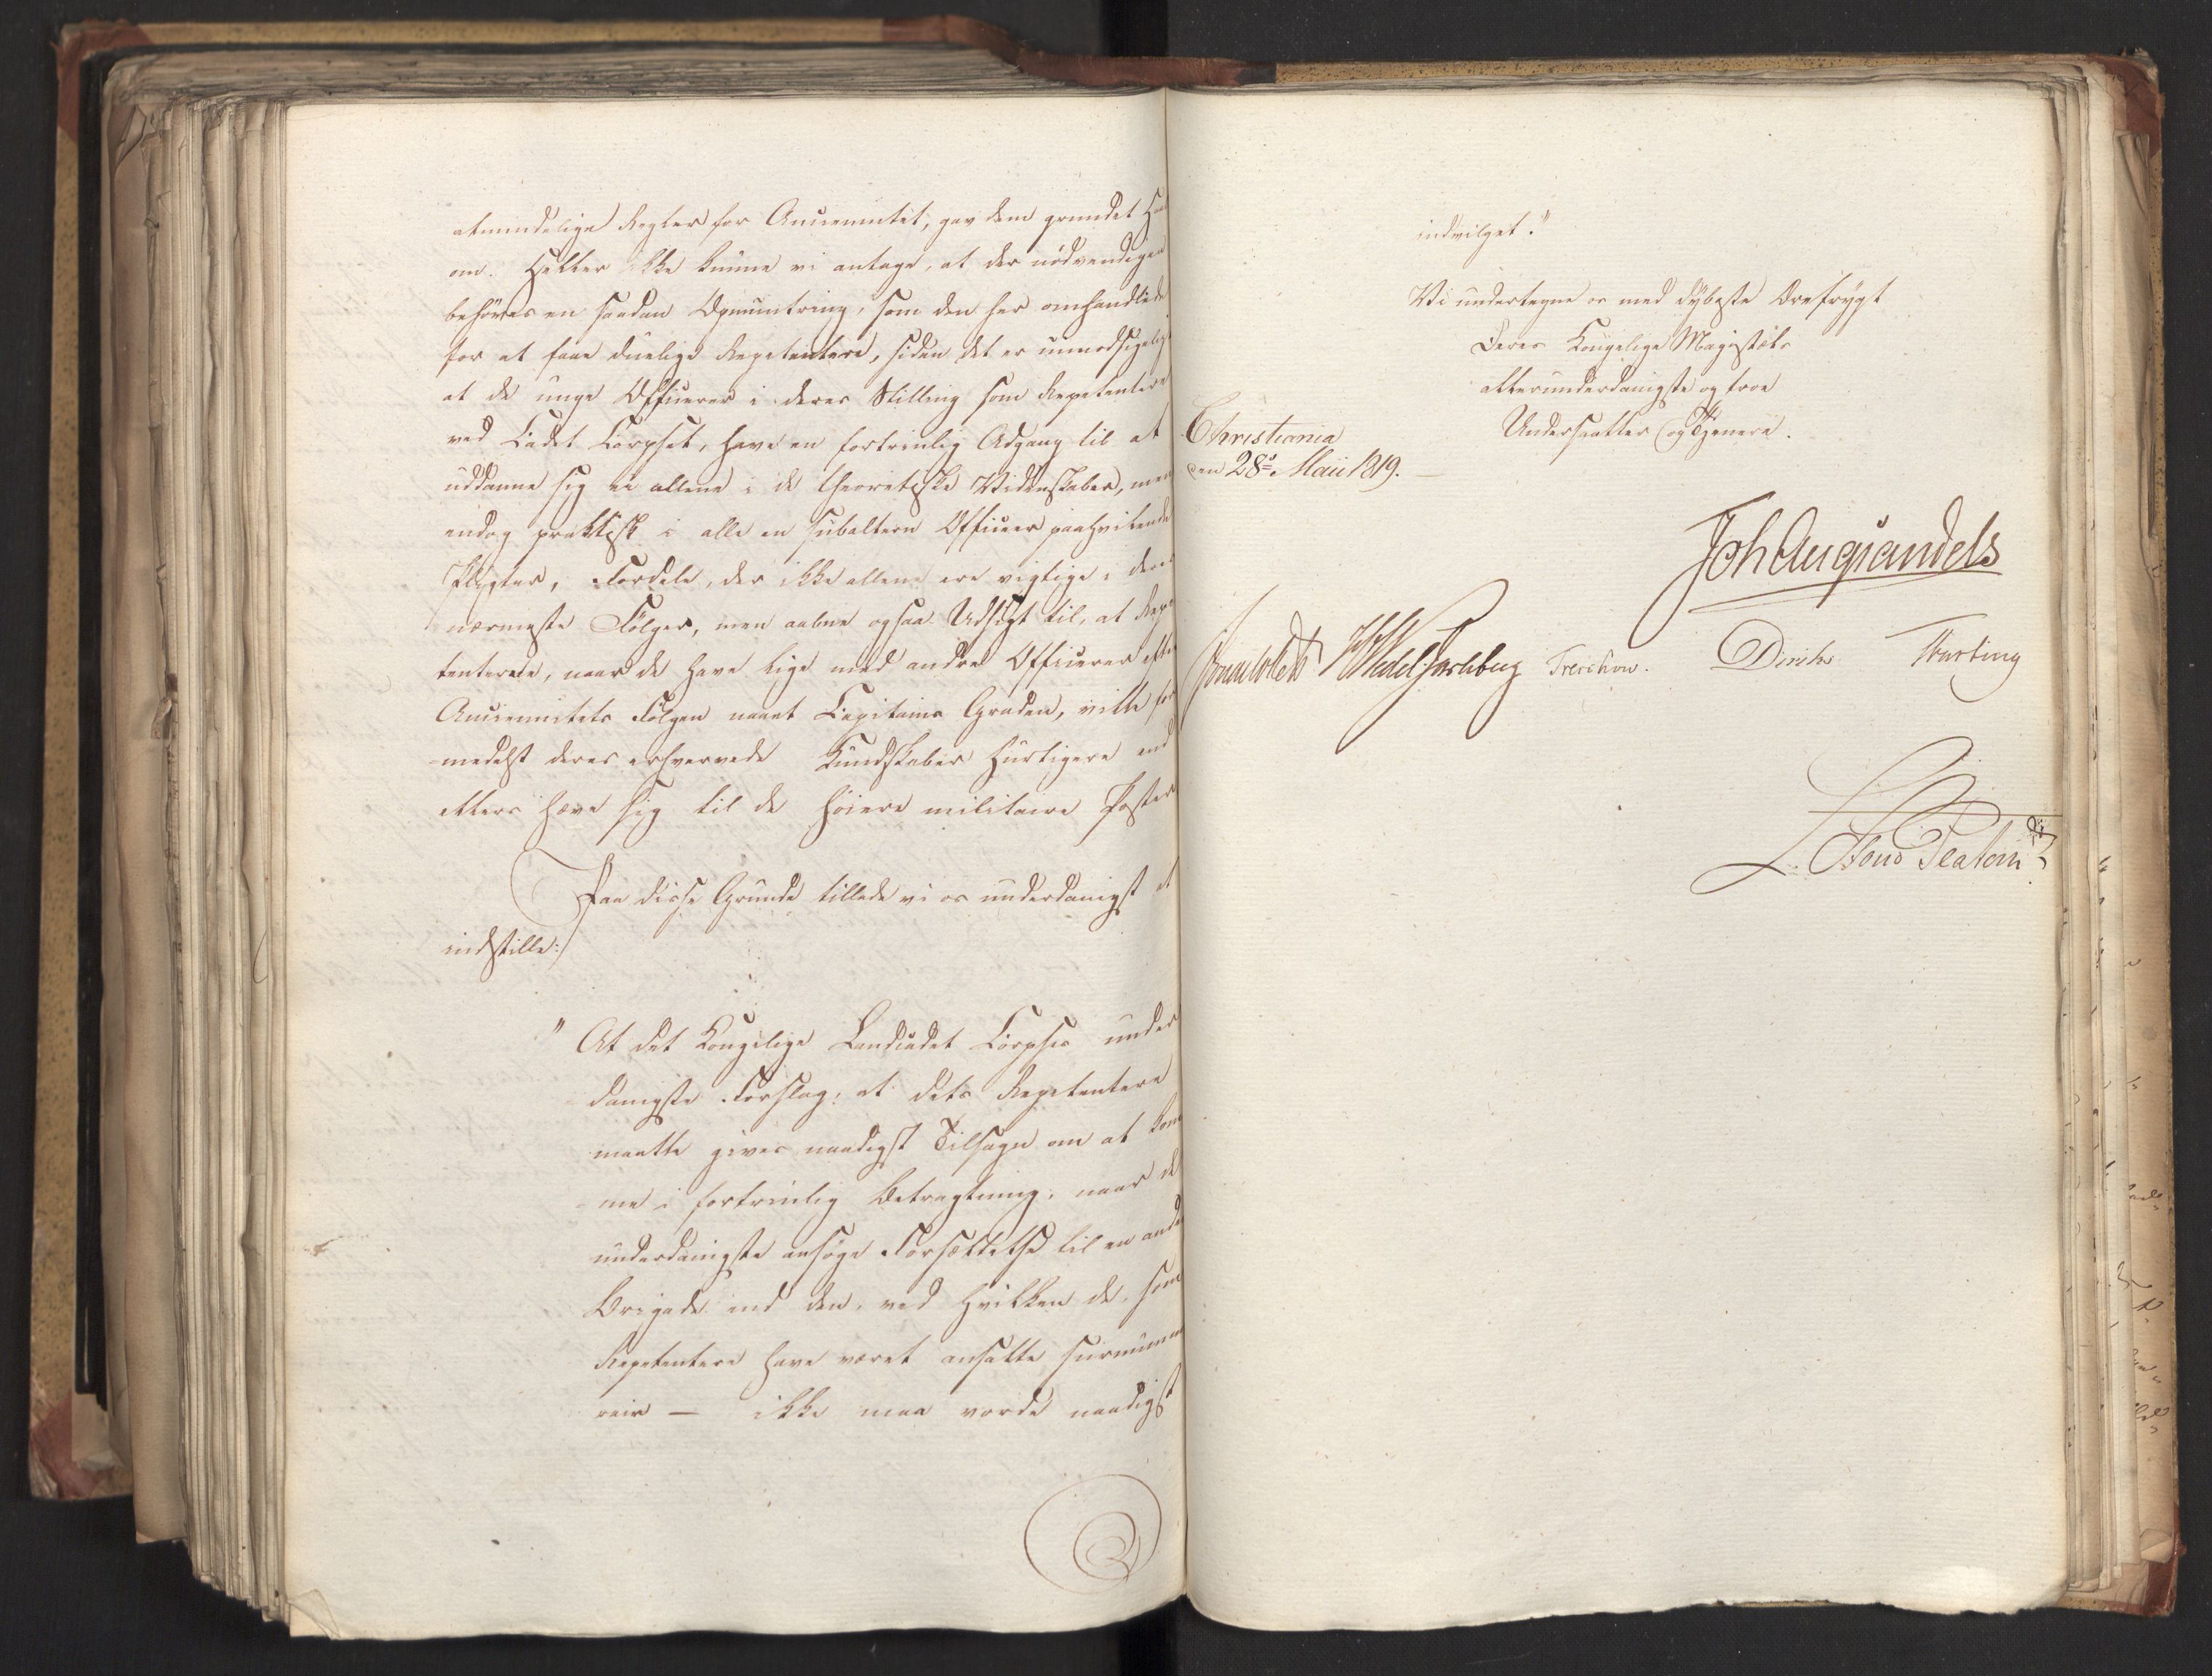 almindelige Regler for Anciennitet, gav dem grundet Haab
om. Heller ikke kunne vi antage, at der nødvendigen
behöves en saadan Opmuntring, som den her omhandlede
for at faae duelige Repetentere, siden det er unmodsigeligt
at de unge Officierer i deres Stilling som Repetentere
ved Cadet Corpset, have en fortrinlig Adgang til at
uddanne sig ei allene i de theoretiske Videnskaber, men
endog praktisk i alle en subaltern Officier paahvilende
Pligter, Fordele, der ikke allene ere vigtige i deres
nærmeste Følger, men aabne ogsaa Udsigt til, at Repe
tenterne, naar de have lige med andre Officierer efter
Anciennitets Følgen naaet Capitains Graden, ville for
medelst deres erhvervede Kundskaber hurtigere end
ellers hæve sig til de höiere militaire Poster
Paa disse Grunde tillade vi os underdanigst at
indstille:
" At det Kongelige Landcadet Corpses under
danigste Forslag: at dets Repetentere
maatte gives naadigst Tilsagn om at kom
me i fortrinlig Betragtning, naar de
underdanigste ansøge Forsættelse til en anden
Brigade end den, ved hvilken de, som
Repetentere have været ansatte surnumme
rair — ikke maa vorde naadigst
indvilget."
Vi undertegne os med dybeste Ærefrygt
Deres Kongelige Majestæts
allerunderdanigste og troe
Undersaatter og Tjenere.
Christiania
den 28de Maii 1819.
Joh Aug Sandels
Sommerhielm HWedel Jarlsberg Treschow. Diriks Fasting
L. Stoud Platou